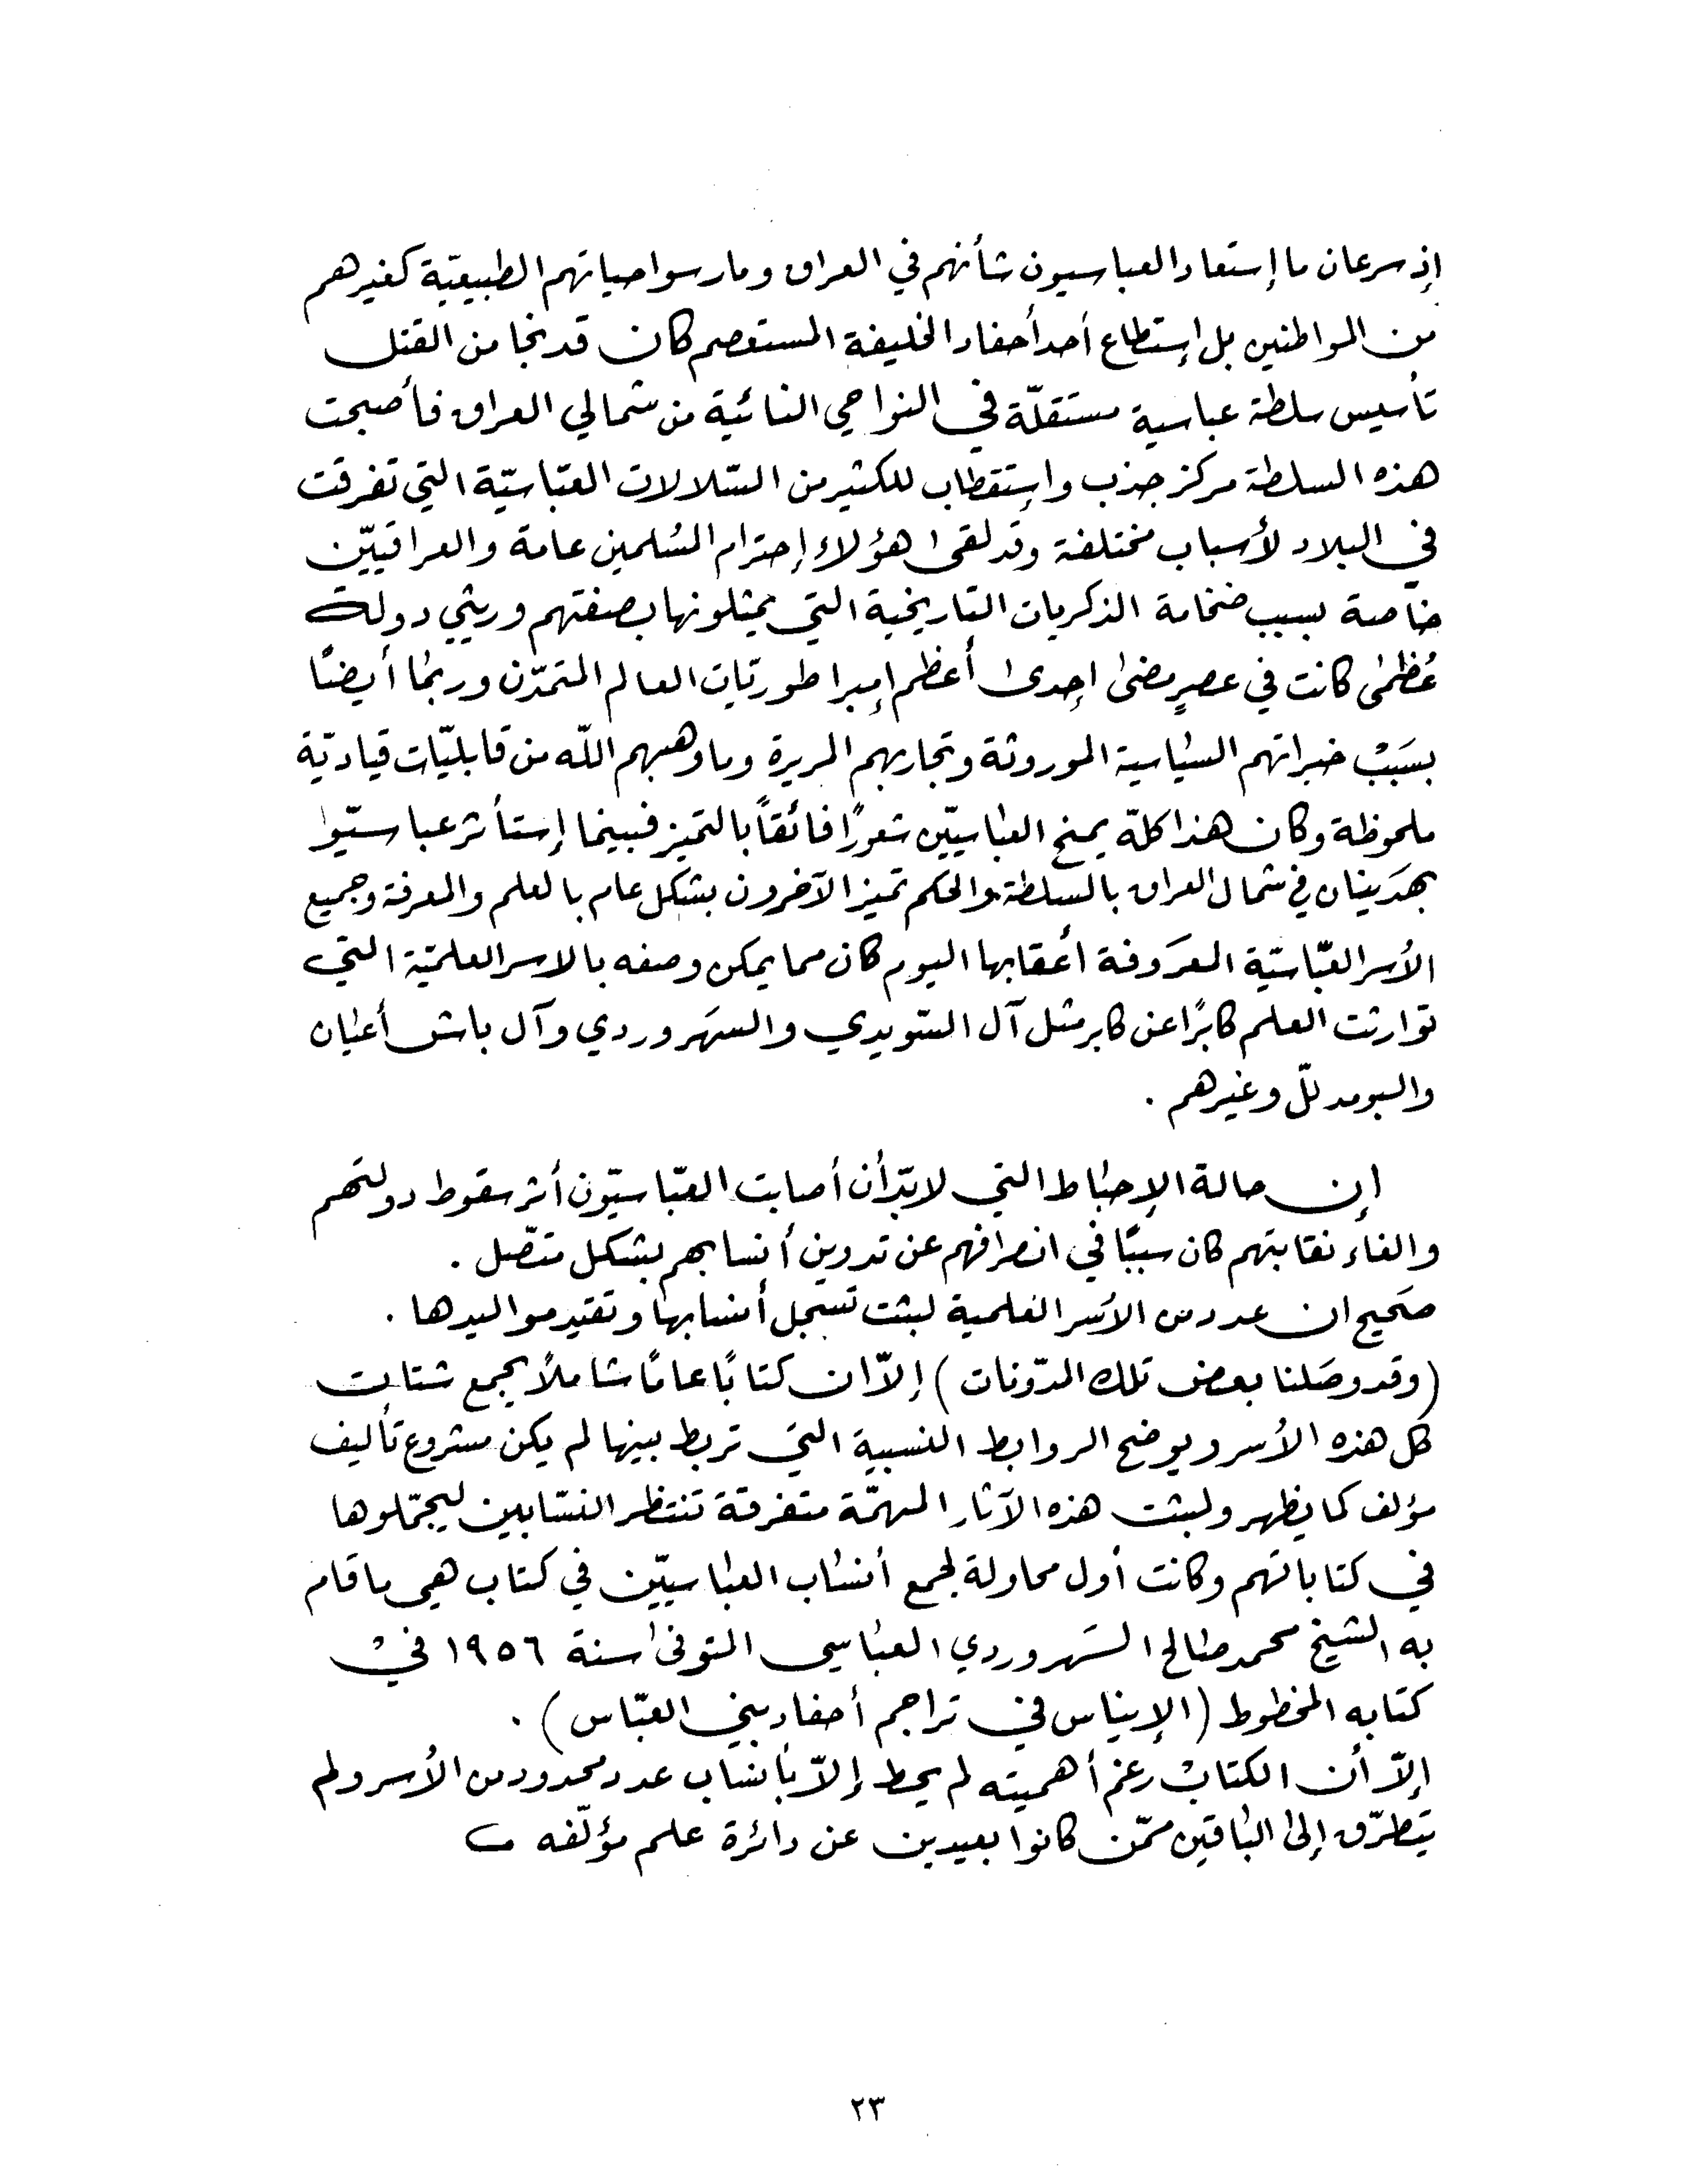 إذ سرعان ما إستعاد العباسيون شأنهم في العراق ومارسوا حياتهم الطبيعيّة كغيرهم
من المواطنين بل إستطاع أحد أحفاد الخليفة المستعصم كان قد نجا من القتل
تأسيس سلطة عباسية مستقلّة في النواحي النائية من شمالي العراق فأصبحت
هذه السلطة مركز جذب واستقطاب للكثير من السّلالات العبّاسيّة التي تفرقت
في البلاد لأسباب مختلفة وقد لقى هؤلاء إحترام المُسلمين عامة والعراقييّن
خاصة بسبب ضخامة الذكريات التاريخية التي يمثلونها بصفتهم وريثي دولة
عُظمىٰ كانت في عصرٍ مضىٰ احِدىٰ أعظم إمبراطوريّات العالم المتمدّن وربمٰا أيضًا
بسَبَبْ خبراتهم السيٰاسية الموروثة وتجاربهم المريرة وما وهبهم اللّه من قابليّات قياديّة
ملحوظة وكان هذا كلّه يمنح العبٰاسييّن شعورًا فائقاً بالتميز فبينما إستأثر عباسيّوا
بهدَينان في شمال العراق بالسلطة والحكم تميز الآخرون بشكل عام بالعلم والمعرفة وجميع
الأسر العبّاسيّة المعرَوفة أعقابها اليوم كان مما يمكن وصفه بالاسر العلميّة التي
توارثت العلم كابرًا عن كابر مثل آل السّويدي والسهَروردي وآل باش أعيٰان
والبومدلّل وغيرهم .
إن حالة الإحبٰاط التي لابدّ أن أصابت العبّاسيّون أثر سقوط دولتهم
والغاء نقابتهم كان سببًا في انصرافهم عن تدوين أنسابهم بشكل متصّل .
صحَيح ان عدد من الأسَر العلمية لبثت تسَجل أنسابها وتقيد مواليدها .
(وقد وصَلنا بعض تلك المدّونات) إلاّ ان كتابًا عامًا شاملاً يجمع شتات
كل هذه الأسر ويوضح الروابط النسبية التي تربط بينها لم يكن مشروع تأليف
مؤلف كما يظهر ولبثت هذه الآثار المهمّة متفرقة تنتظر النسّابين ليجمّلوها
في كتاباتهم وكانت أول محاولة لجمع أنسٰاب العبٰاسييّن في كتاب هي ما قام
به الشيخ محمد صٰالح السَهروردي العبٰاسي المتوفىٰ سنة ١٩٥٦ فيْ
كتابه المخطوط (الإينٰاس في تراجم أحفاد بني العبّاس) .
إلاّ أن الكتابْ رغم أهميته لم يحط إلاّ بأنساب عدد محدود من الأسر ولم
يتطرّق إلىٰ البٰاقين ممّن كانوا بعيدين عن دائرة علم مؤلّفه
٢٣